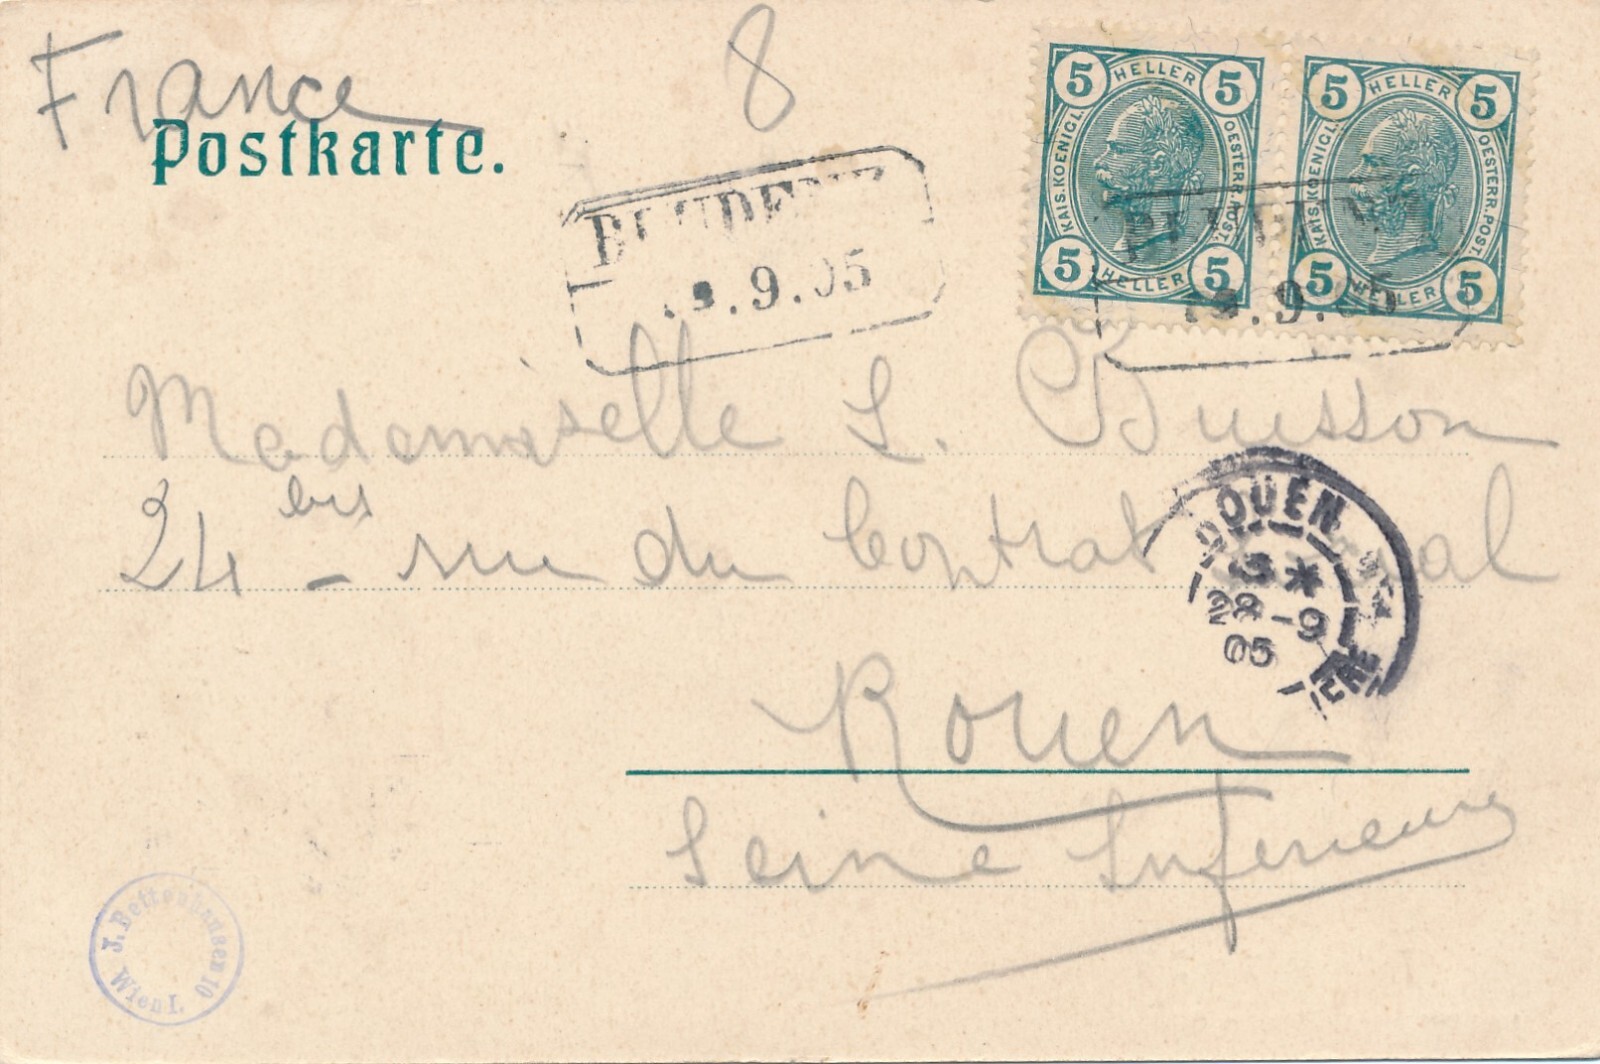 France
8
Postkarte.
5 HELLER 5
KAIS. KOENIGL. OESTERR. POST.
5 HELLER 5
5 HELLER 5
KAIS. KOENIGL. OESTERR. POST.
5 HELLER 5
BLUDENZ
.9.05
BLUDENZ
.9.05
Mademoiselle L. Buisson
24 bis - rue du Contrat Social
ROUEN
3 *
28 - 9
05
Rouen
Seine Inférieure
J. Bettenhausen 10
Wien I.